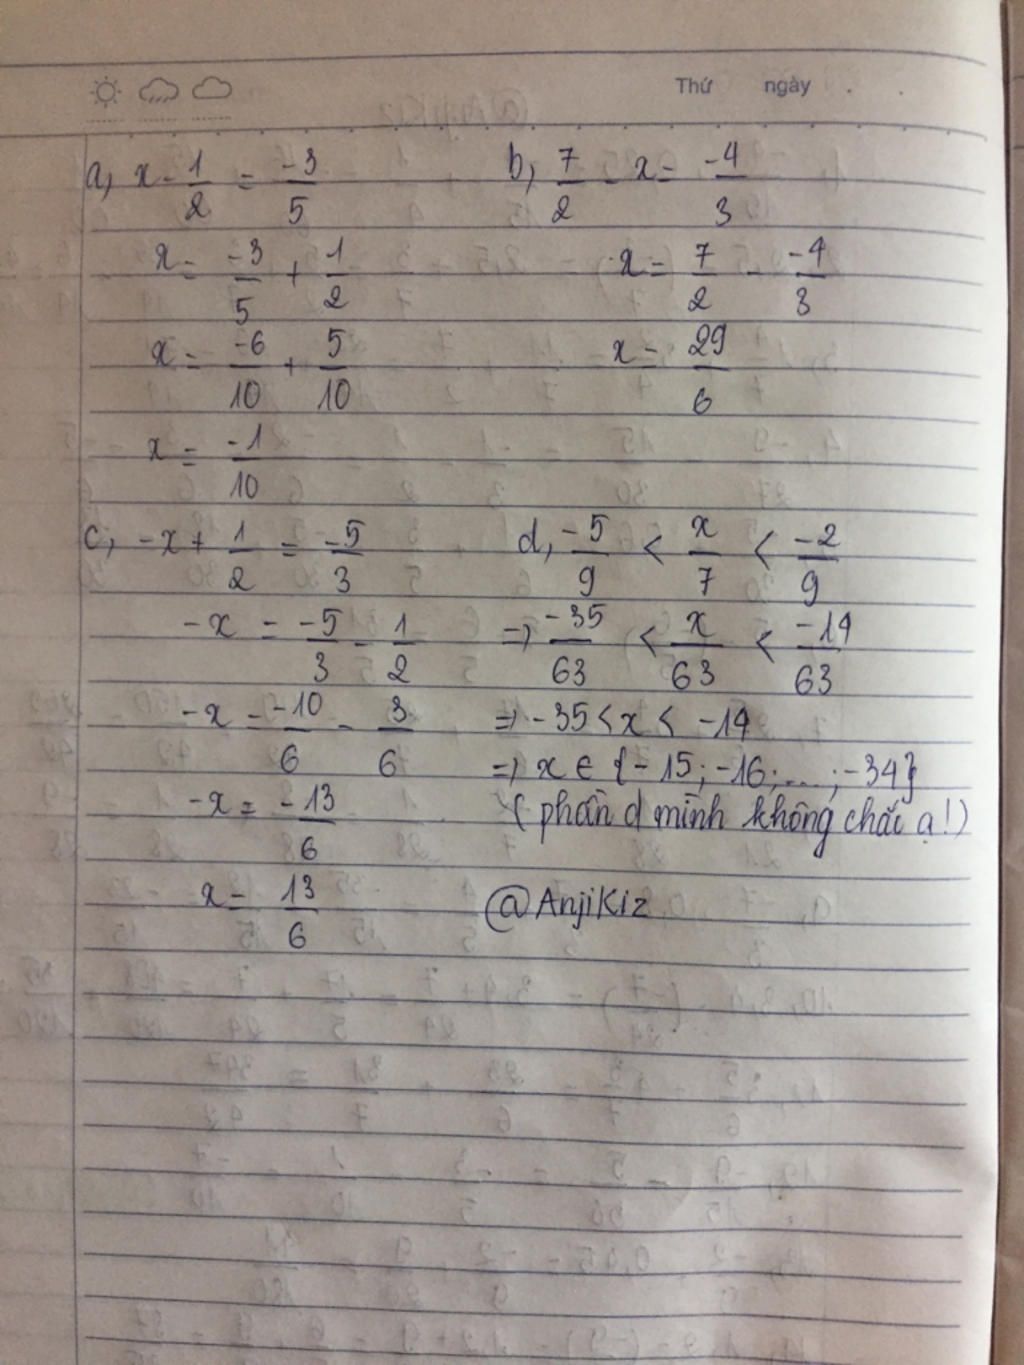 Thứ ngày
a, x - 1/2 = -3/5
x = -3/5 + 1/2
x = -6/10 + 5/10
x = -1/10
b, 7/2 - x = -4/3
x = 7/2 - -4/3
x = 29/6
c, -x + 1/2 = -5/3
-x = -5/3 - 1/2
-x = -10/6 - 3/6
-x = -13/6
x = 13/6
d, -5/9 < x/7 < -2/9
=> -35/63 < x/63 < -14/63
=> -35 < x < -14
=> x ∈ {-15; -16; ...; -34}
(phần d mình không chắc ạ!)
@AnjiKiz